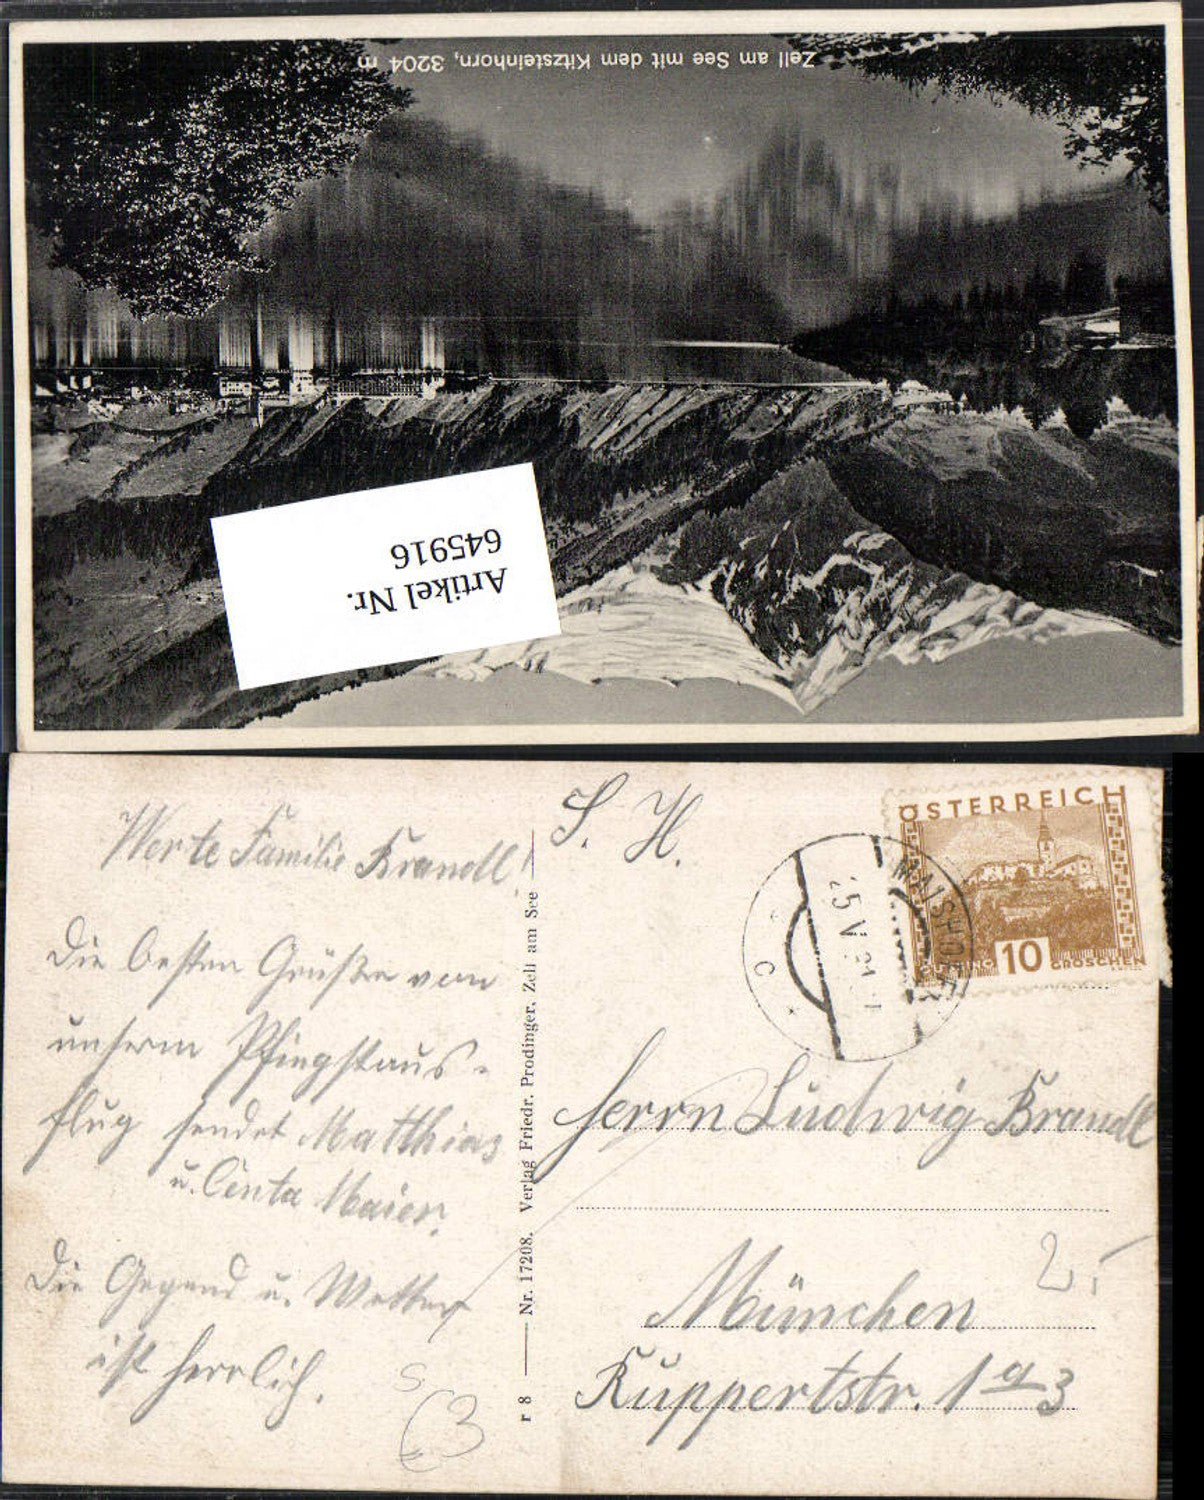 Zell am See mit dem Kitzsteinhorn, 3204 m
Artikel Nr.
645916
Werte Familie Brandl!
Die besten Grüße von
unserm Pfingstaus-
flug sendet Matthias
u. Centa Maier.
Die Gegend u. Wetter
ist herrlich.
r 8 Nr. 17208. Verlag Friedr. Prodinger, Zell am See
S. H.
ÖSTERREICH
10
GROSCHEN
MAISHOFEN
25 V
C
Herrn Ludwig Brandl
München
Ruppertstr. 1 a 3
2.-
3